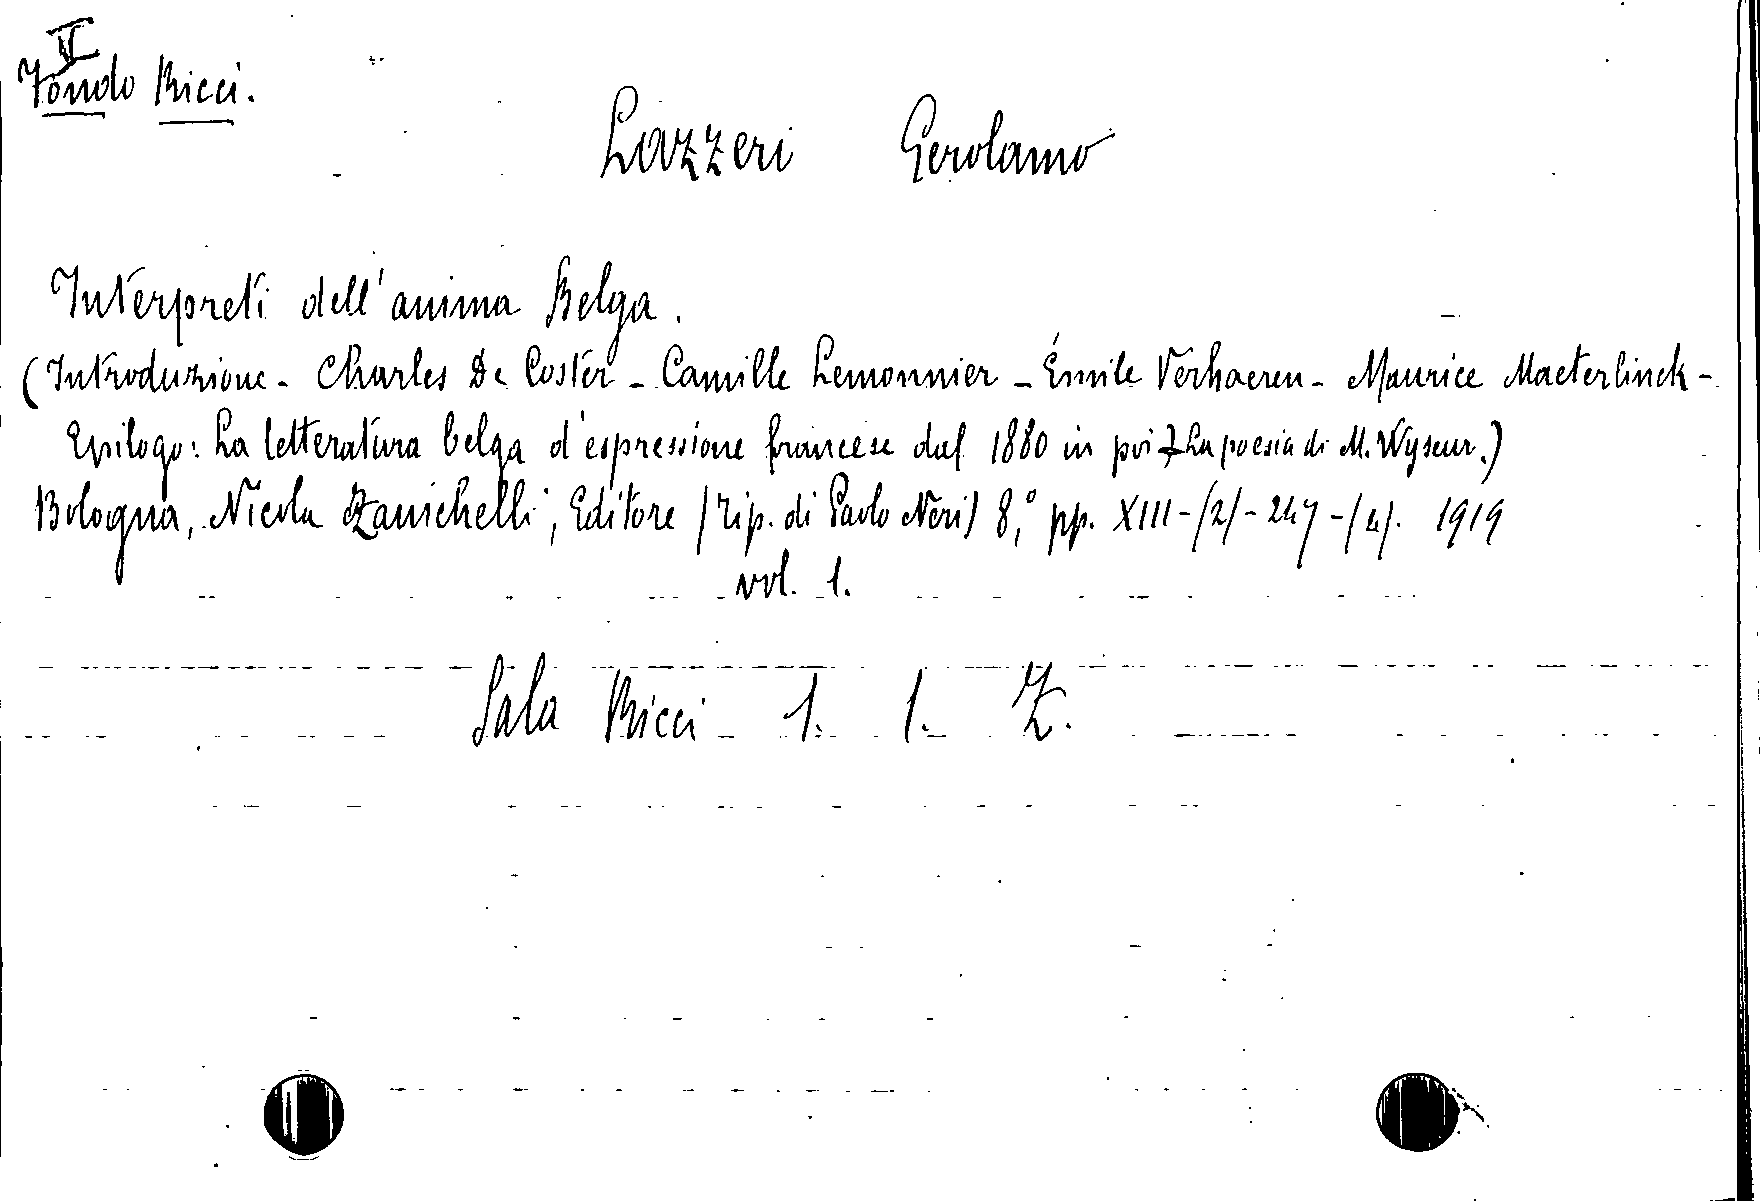 II
Fondo Ricci.
Lazzeri Gerolamo
Interpreti dell'anima Belga.
(Introduzione - Charles De Coster - Camille Lemonnier - Émile Verhaeren - Maurice Maeterlinck -
Epilogo: La letteratura belga d'espressione francese dal 1880 in poi La poesia di M. Wyseur.)
Bologna, Nicola Zanichelli, Editore (Tip. di Paolo Neri) 8,° pp. XIII-(2)-247-(4). 1919
vol. 1.
Sala Ricci 1. 1. Z.